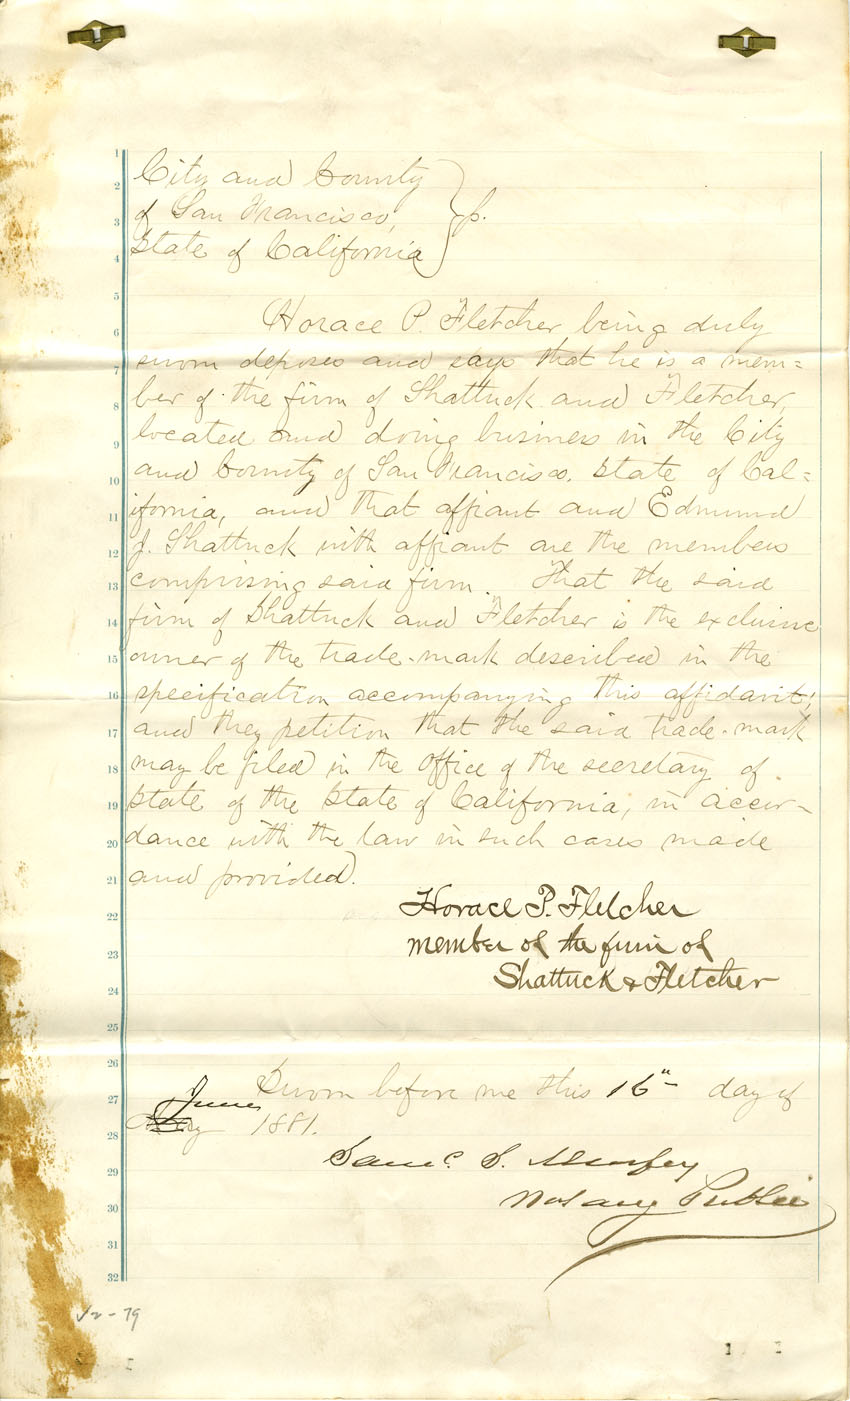 City and County
of San Francisco,
State of California } ss.
Horace P. Fletcher being duly
sworn deposes and says that he is a mem=
ber of the firm of Shattuck and Fletcher,
located and doing business in the City
and County of San Francisco, State of Cal=
ifornia, and that affiant and Edmund
J. Shattuck with affiant are the members
comprising said firm. That the said
firm of Shattuck and Fletcher is the exclusive
owner of the trade-mark described in the
specification accompanying this affidavit;
and they petition that the said trade-mark
may be filed in the office of the secretary of
State of the State of California, in accor-
dance with the law in such cases made
and provided.
Horace P. Fletcher
member of the firm of
Shattuck & Fletcher
Sworn before me this 16" day of
June
May 1881.
Saml. S. Murfey
Notary Public
1
2
3
4
5
6
7
8
9
10
11
12
13
14
15
16
17
18
19
20
21
22
23
24
25
26
27
28
29
30
31
32